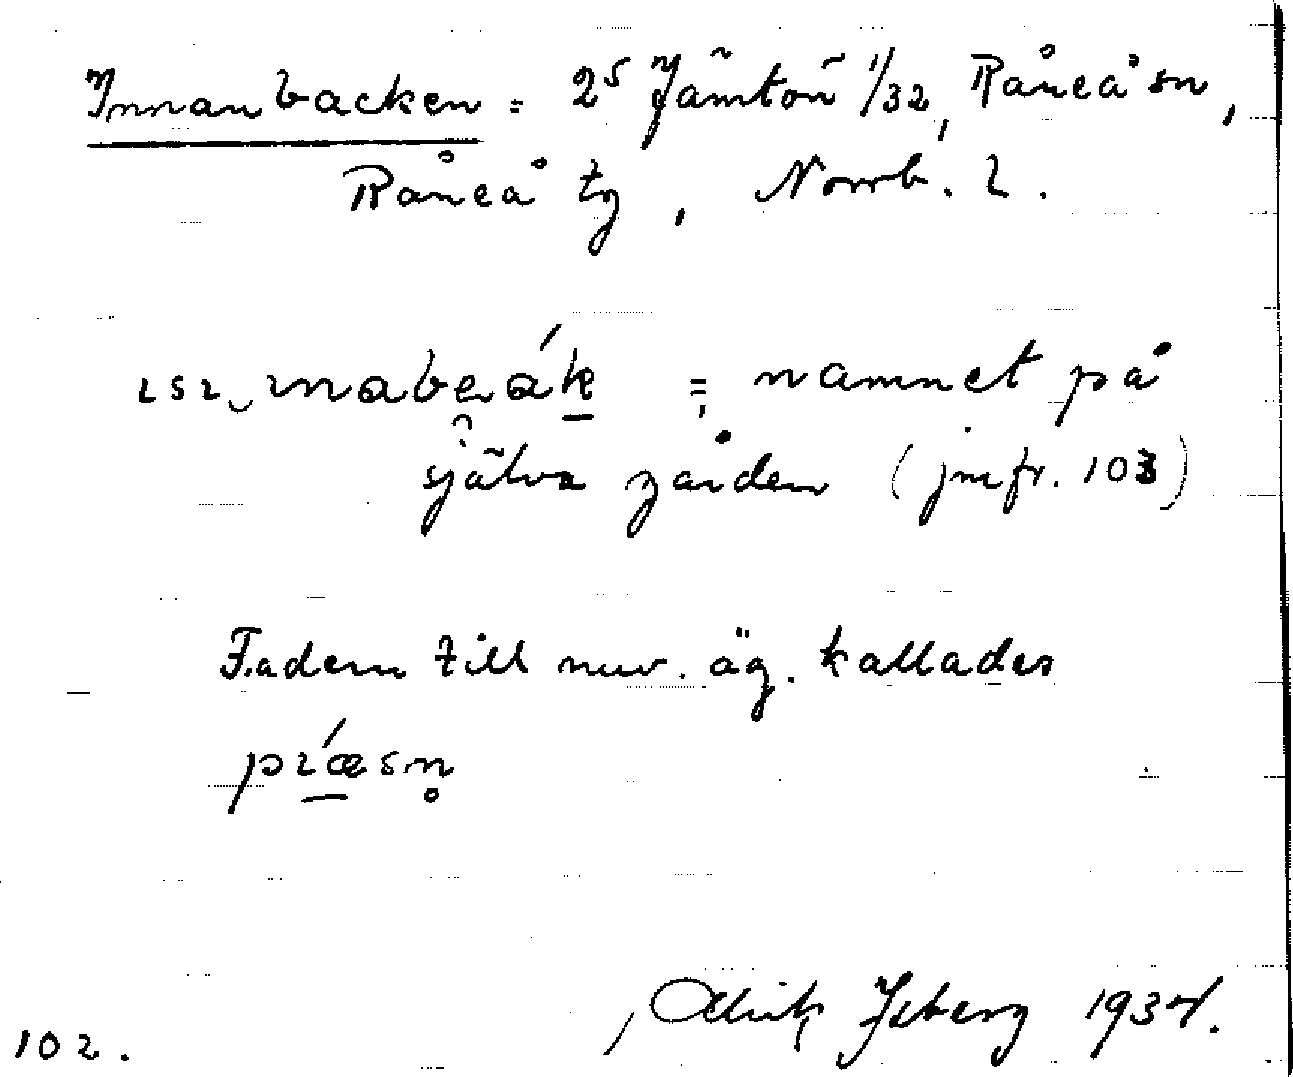 Innanbacken = 2⁵ Jämtön 1/32, Råneå sn,
Råneå tg, Norrb. l.
= namnet på
själva gården (jmfr. 103)
Fadern till nuv. äg. kallades
præsn̥
Isberg 1934.
102.